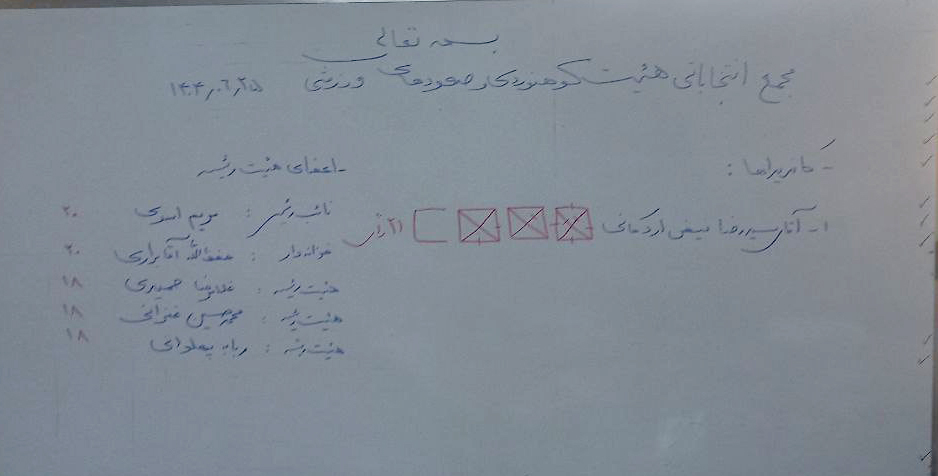 بسمه تعالی
مجمع انتخاباتی هیئت کوهنوردی و صعودهای ورزشی ۱۴۰۴,۰۶,۲۵
- کاندیداها :
۱- آقای سیدرضا فیض اردکانی (۲۱ رأی
- اعضای هیئت رئیسه
نائب رئیس : مریم اسدی ۲۰
خزانه‌دار : ۲۰
هیئت رئیسه : غلامرضا حیدری ۱۸
هیئت رئیسه : محمدحسین ۱۸
هیئت رئیسه : ۱۸